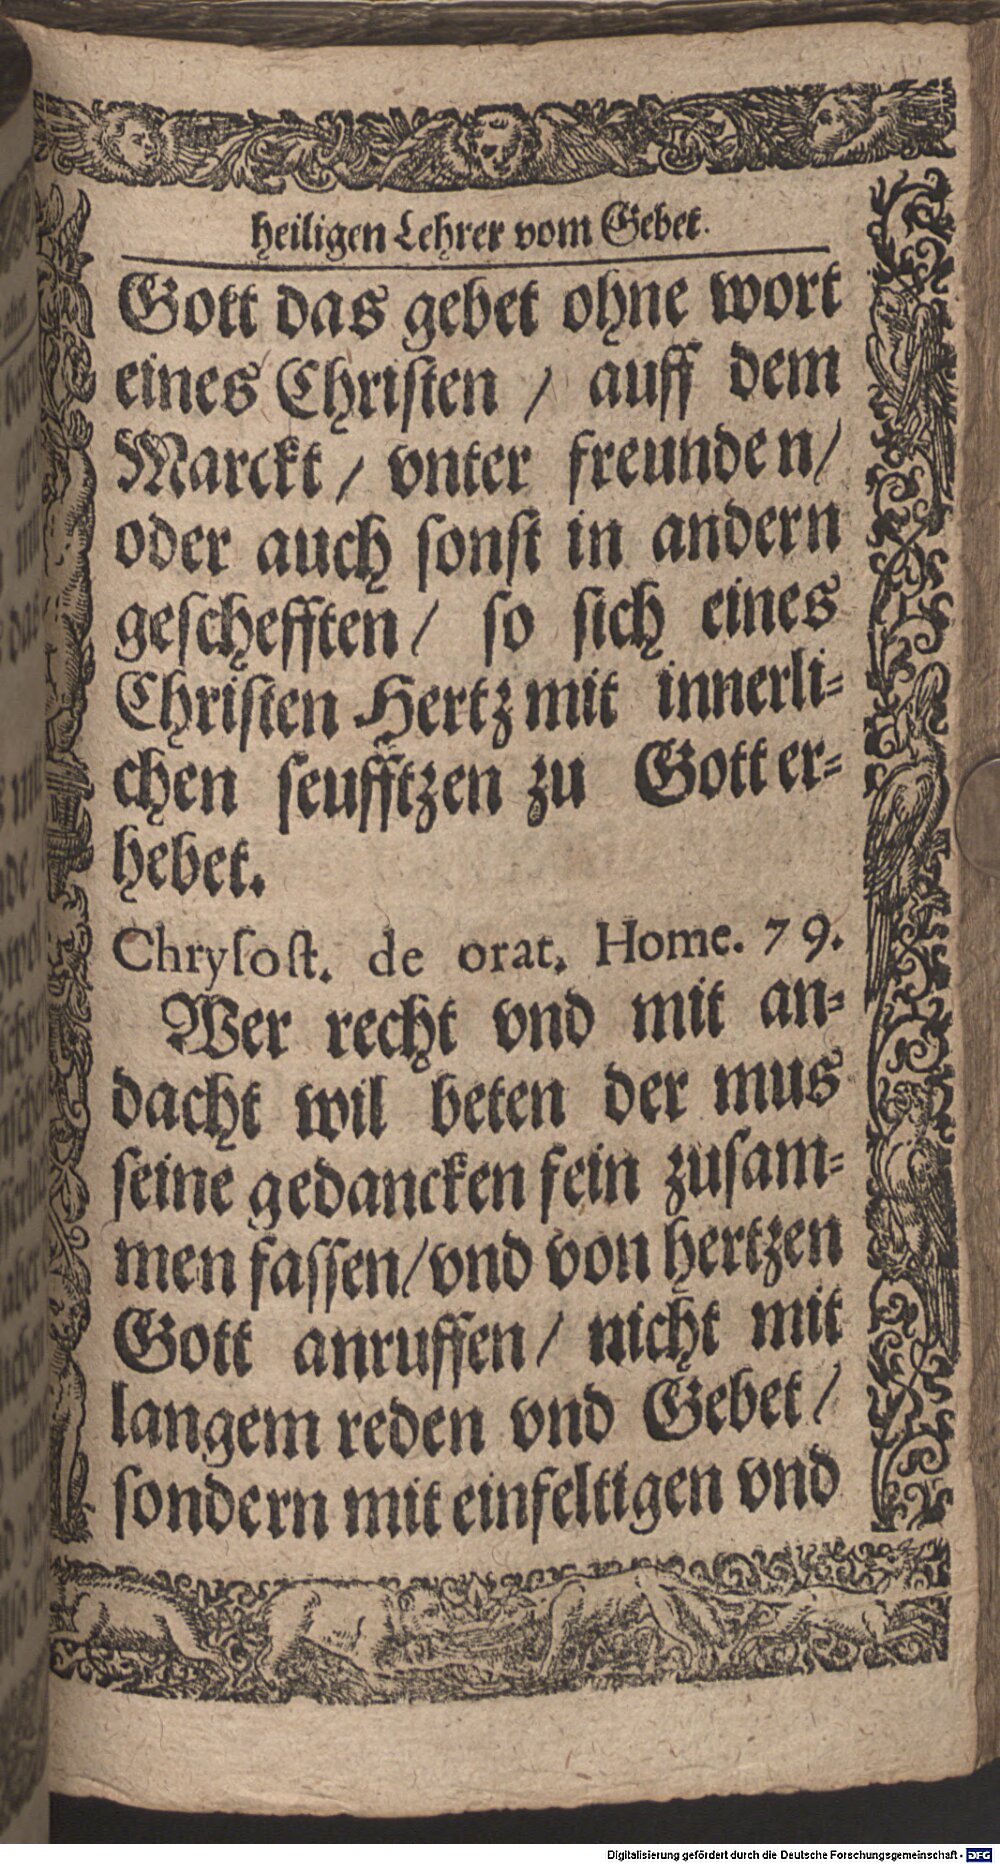 heiligen Lehrer vom Gebet.
Gott das gebet ohne wort
eines Christen / auff dem
Marckt / vnter freunden /
oder auch sonst in andern
geschefften / so sich eines
Christen Hertz mit innerli-
chen seufftzen zu Gott er-
hebet.
Chrysost. de orat. Home. 79.
Wer recht vnd mit an-
dacht wil beten der mus
seine gedancken fein zusam-
men fassen / vnd von hertzen
Gott anruffen / nicht mit
langem reden vnd Gebet /
sondern mit einfeltigen vnd
Digitalisierung gefördert durch die Deutsche Forschungsgemeinschaft - DFG